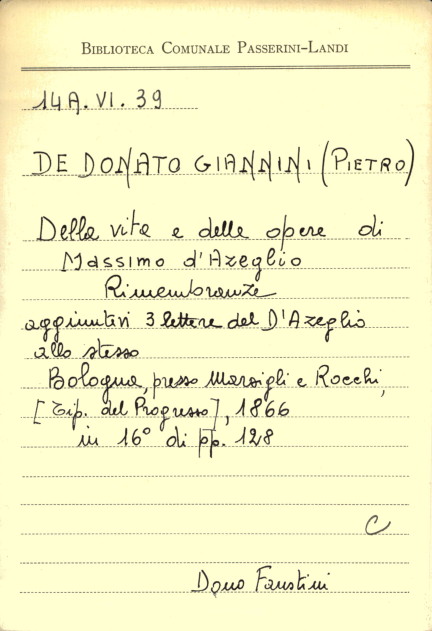 BIBLIOTECA COMUNALE PASSERINI-LANDI
14A.VI.39
DE DONATO GIANNINI (PIETRO)
Della vita e delle opere di
Massimo d'Azeglio
Rimembranze
aggiuntevi 3 lettere del D'Azeglio
allo stesso
Bologna, presso Marsigli e Rocchi,
[Tip. del Progresso], 1866
in 16° di pp. 128
C
Dono Faustini